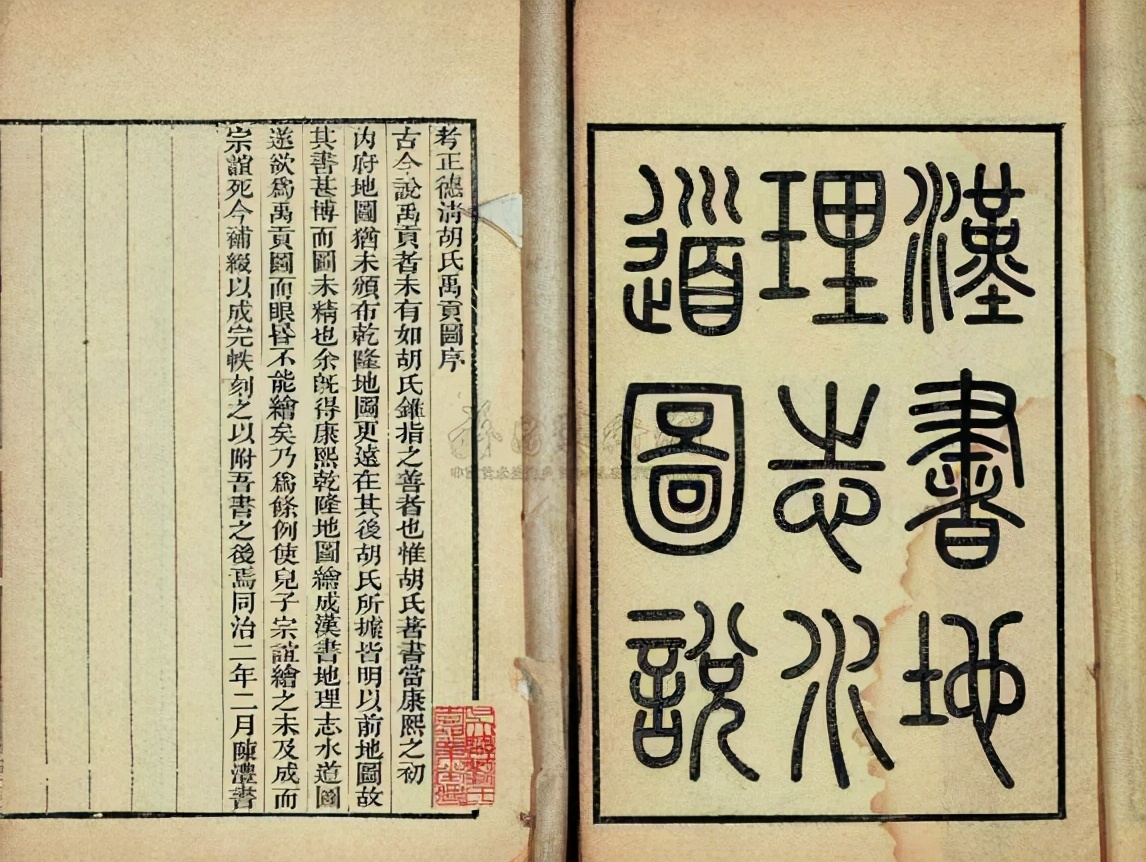 漢書地
理志水
道圖說
考正德清胡氏禹貢圖序
古今說禹貢者未有如胡氏錐指之善者也惟胡氏著書當康熙之初
內府地圖猶未頒布乾隆地圖更遠在其後胡氏所據皆明以前地圖故
其書甚博而圖未精也余既得康熙乾隆地圖繪成漢書地理志水道圖
遂欲爲禹貢圖而眼昏不能繪矣乃爲條例使兒子宗誼繪之未及成而
宗誼死今補綴以成完帙刻之以附吾書之後焉同治二年二月陳澧書